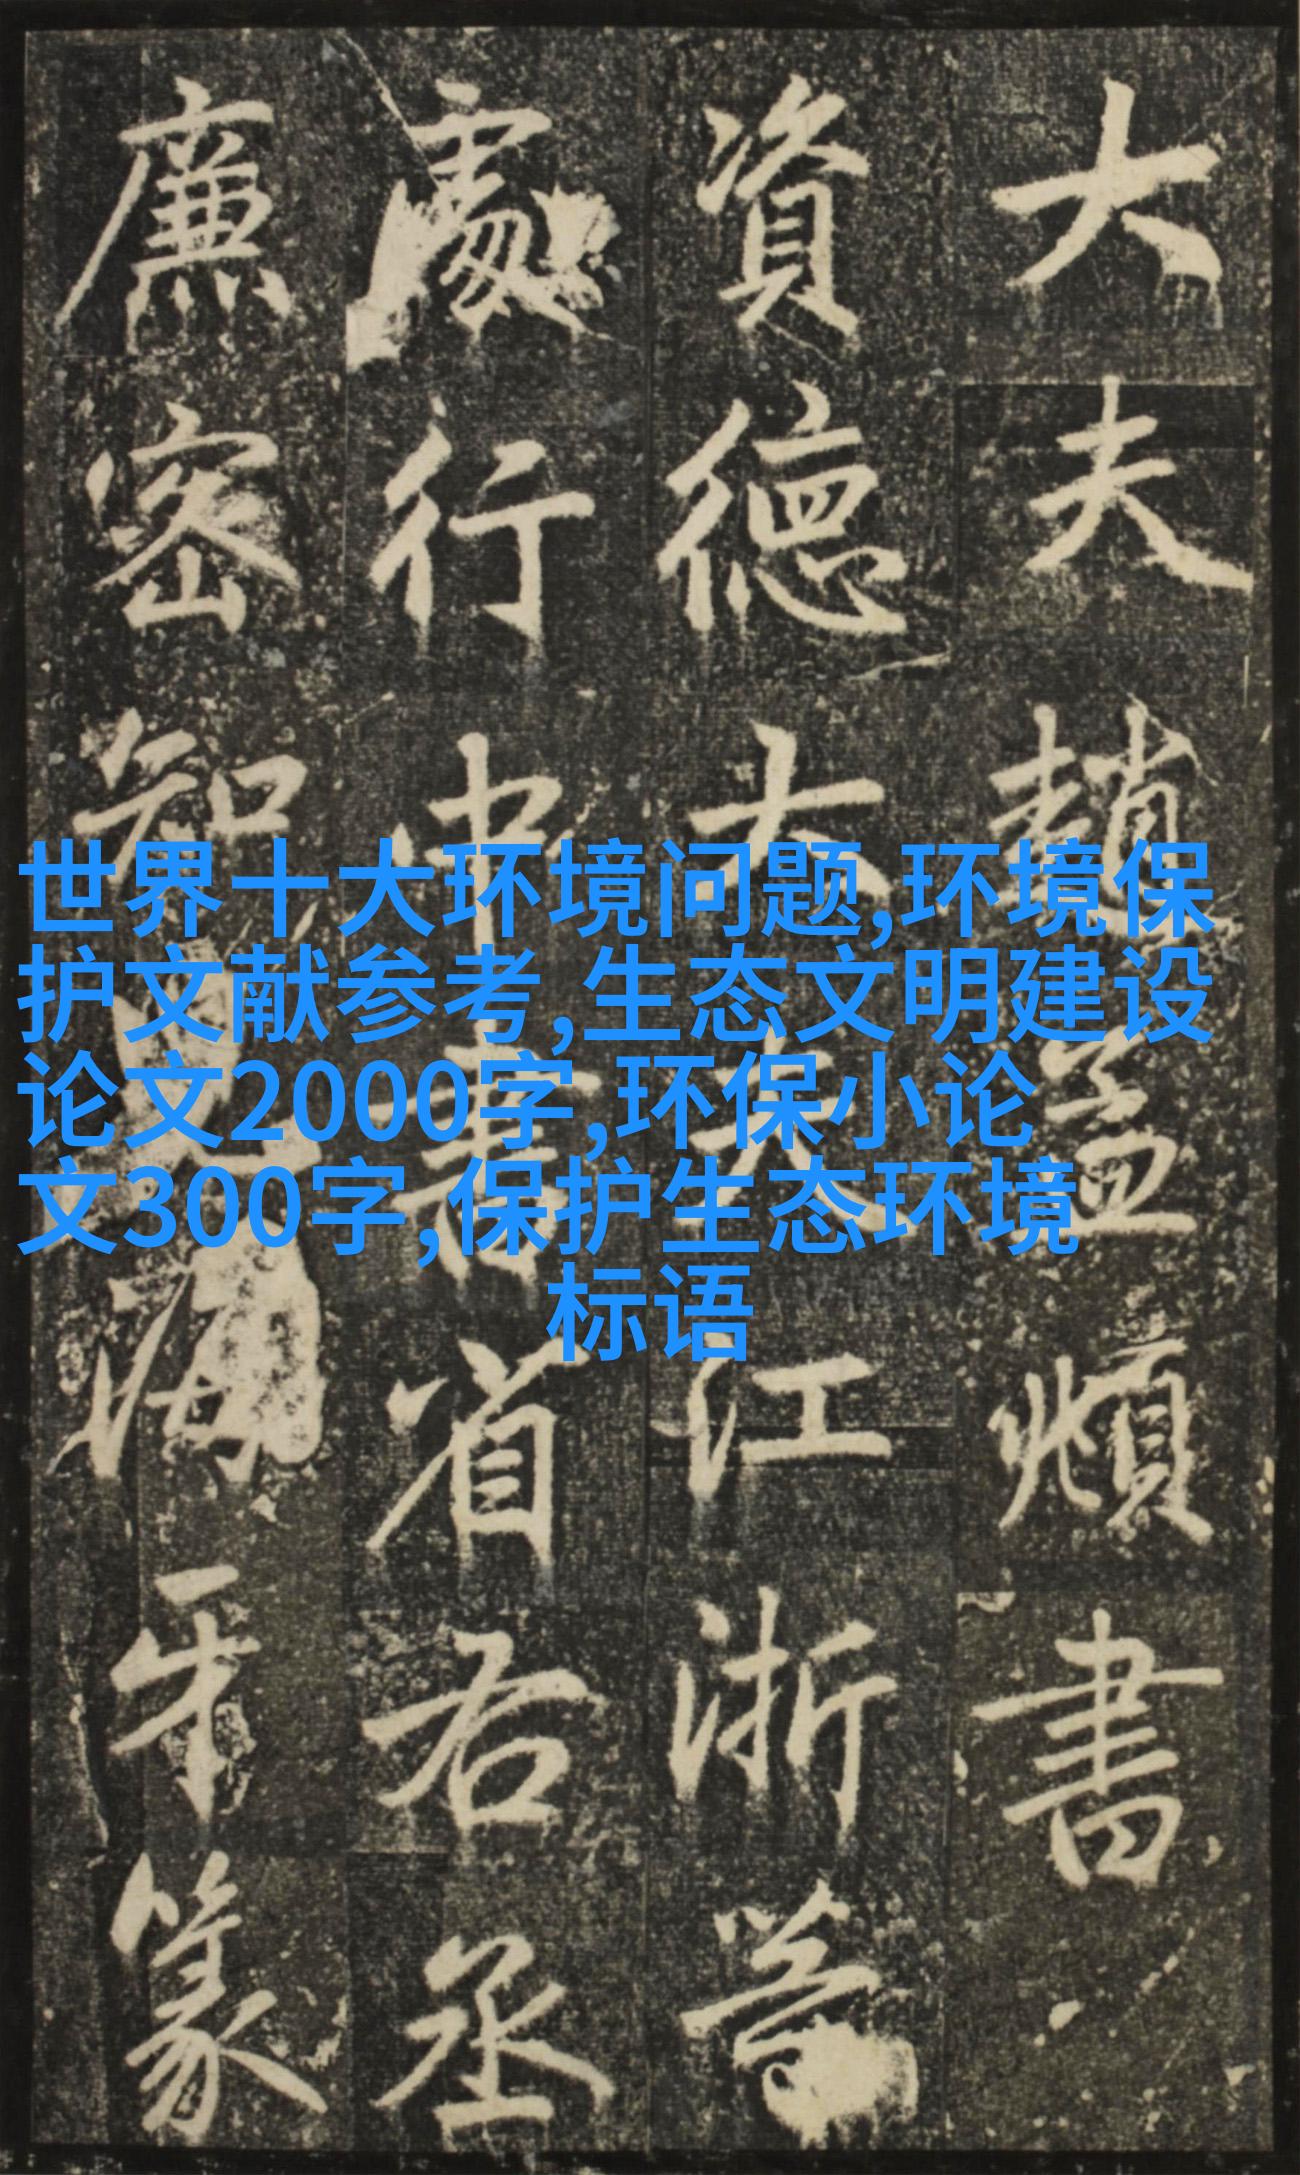 大夫趙孟頫書
資德大夫江浙等
處行中書省右丞
廉密知兒海牙篆
世界十大环境问题,环境保
护文献参考,生态文明建设
论文2000字,环保小论
文300字,保护生态环境
标语